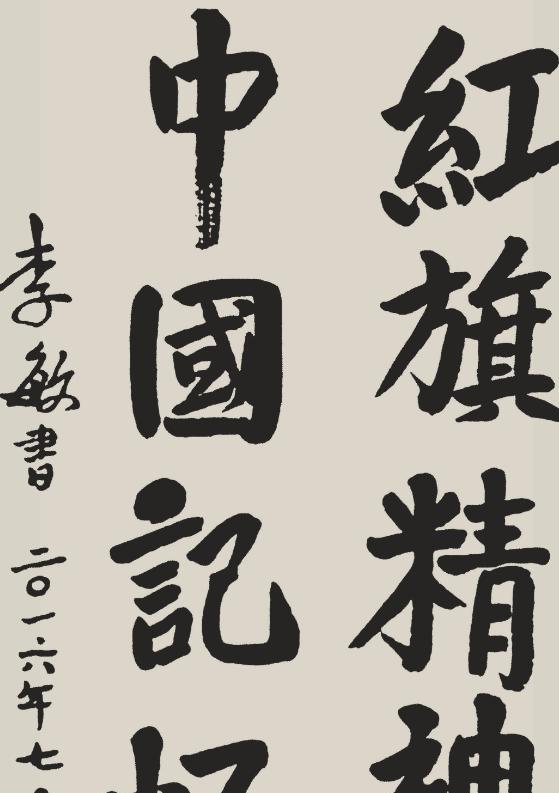 紅旗精神
中國記憶
李敏書 二〇一六年七